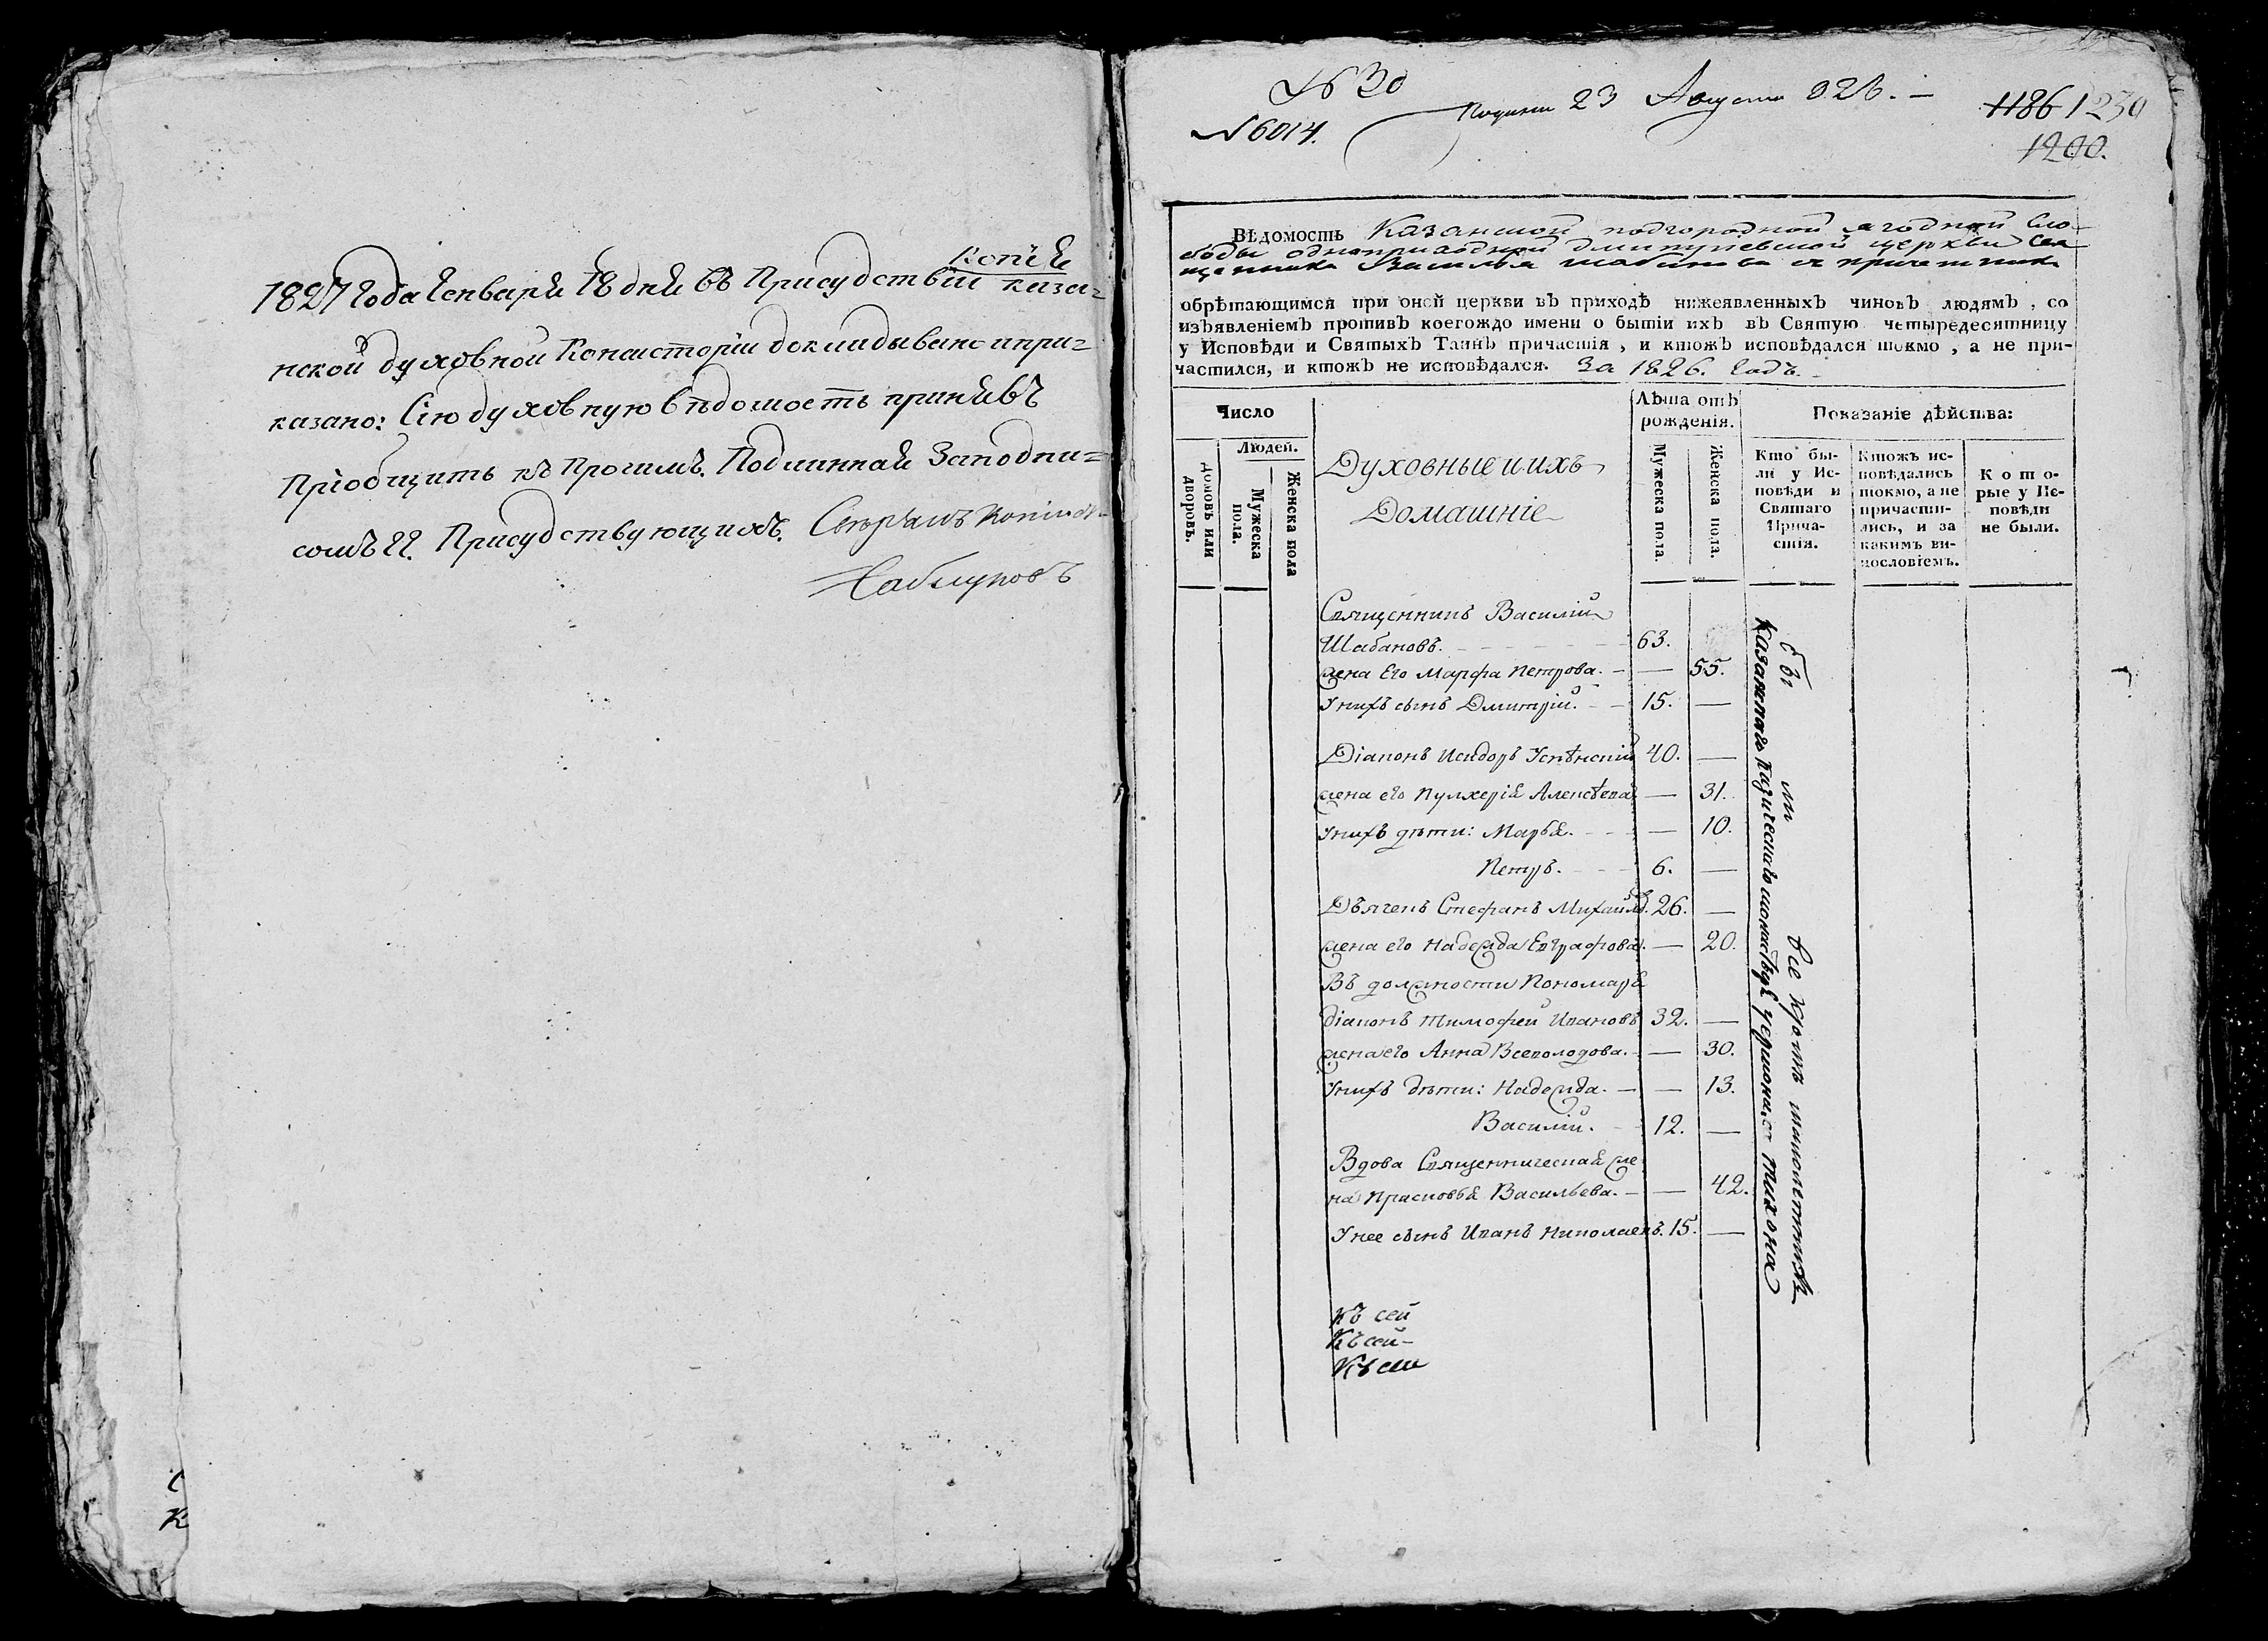 Копія
1827 Года Генваря 18 дня въ Присудствіи каза-
нской духовной Консисторіи докладывано и при-
казано: Сію духовную вѣдомость принявъ
Пріобщить къ прочимъ. Подлинная За подпи-
сомъ ГГ. Присудствующихъ.
№ 30
№ 6014.
23 Августа 826. —
1186 1230
1200.
ВѢдомость Казанской подгородной ягодной Сло-
боды одноприходной Димитріевской церкви Свя
щенника Василья Шабанова съ причетники
обрѣтающимся при оной церкви въ приходѣ нижеявленныхъ чиновъ людямъ, со
изъявленіемъ противъ коегождо имени о бытіи ихъ въ Святую четыредесятницу
у Исповѣди и Святыхъ Таинъ причастія, и ктожъ исповѣдался токмо, а не при-
частился, и ктожъ не исповѣдался. За 1826. Годъ.
Число
Людей.
домовъ или дворовъ.
Мужеска пола.
Женска пола
Духовные и ихъ
Домашніе
Лѣта отъ
рожденія.
Мужеска пола.
Женска пола.
Показаніе дѣйства:
Кто бы-
ли у Ис-
повѣди и
Святаго
Прича-
стія.
Ктожъ ис-
повѣдались
токмо, а не
причасти-
лись, и за
какимъ ви-
нословіемъ.
Кото-
рые у Ис-
повѣди
не были.
Священникъ Василій
Шабановъ. 63.
жена Его Марфа Петрова. — — 55.
У нихъ сынъ Дмитрій. — 15. —
Діаконъ Исидоръ Успѣнскій 40. —
жена его Пулхерія Алексѣева — 31.
У нихъ дѣти: Марья. — 10.
Петръ. 6. —
Дьячекъ Стефанъ Михайлов. 26. —
жена его Надежда Евграфова. — 20.
Въ должности Пономаря
діаконъ Тимофей Ивановъ 32. —
жена его Анна Всеволодова. — 30.
У нихъ дѣти: Надежда. — — 13.
Василій. 12. —
Вдова Священническая же-
на Прасковья Васильева. — — 42.
У нее сынъ Иванъ Николаевъ. 15. —
Къ сей
Къ сей-
Къ сей
Бы ли все кромѣ малолетнихъ
казанскаго кизическаго монастыря Тихона